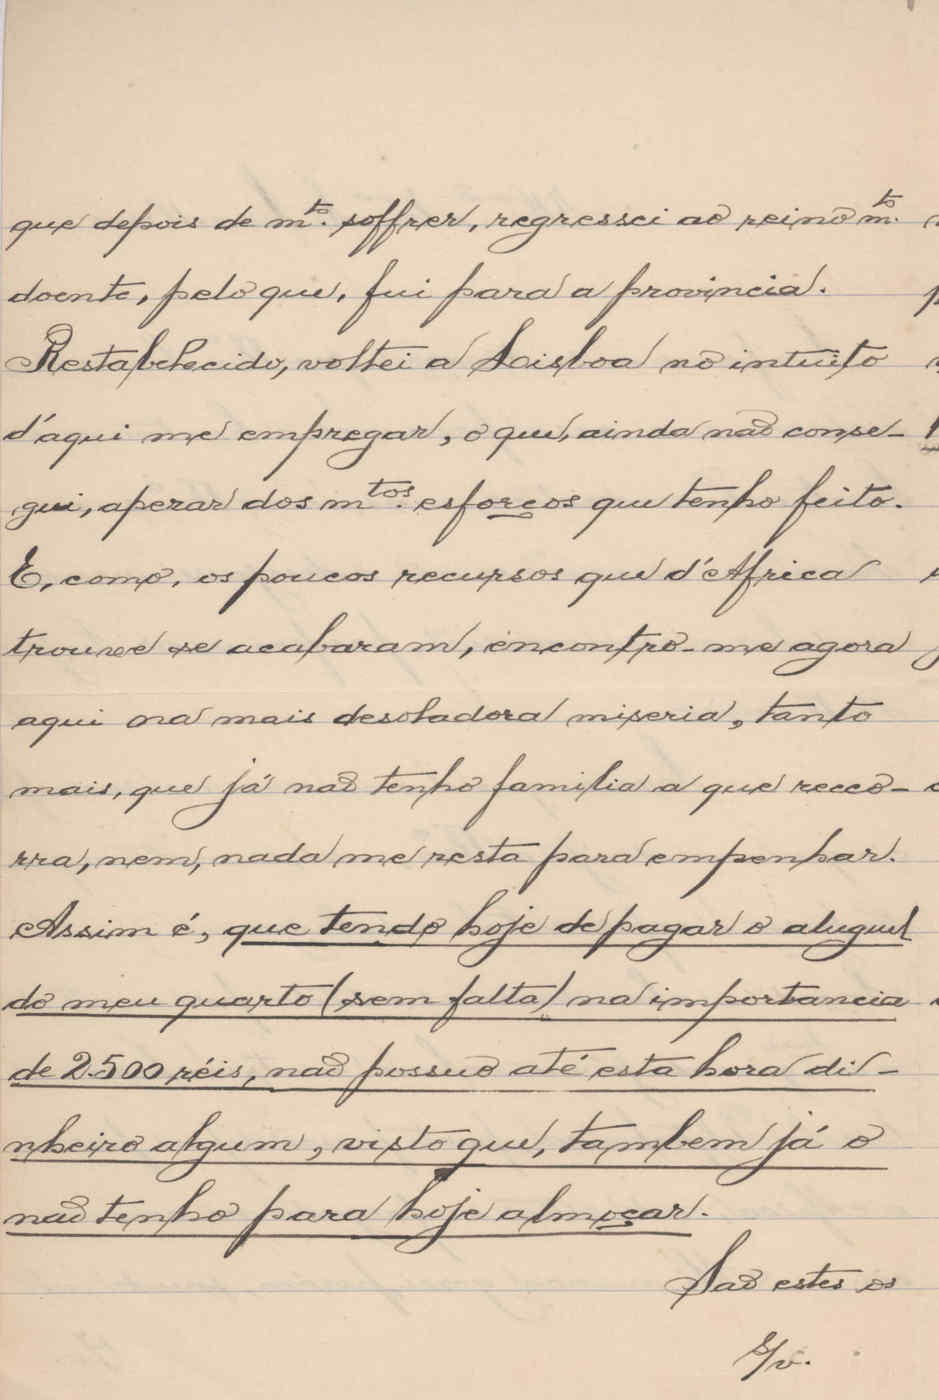 que depois de mto. soffrer, regressei ao reino mto.
doente, pelo que, fui para a provincia.
Restabelecido, voltei a Lisboa no intuito
d'aqui me empregar, o que, ainda não conse-
gui, apezar dos mtos. esforços que tenho feito.
E, como, os poucos recursos que d'Africa
trouxe se acabaram, encontro-me agora
aqui na mais desoladora miseria, tanto
mais, que já não tenho familia a que recco-
rra, nem, nada me resta para empenhar.
Assim é, que tendo hoje de pagar o aluguel
do meu quarto (sem falta) na importancia
de 2.500 réis, não possuo até esta hora di-
nheiro algum, visto que, tambem já o
não tenho para hoje almoçar.
São estes os